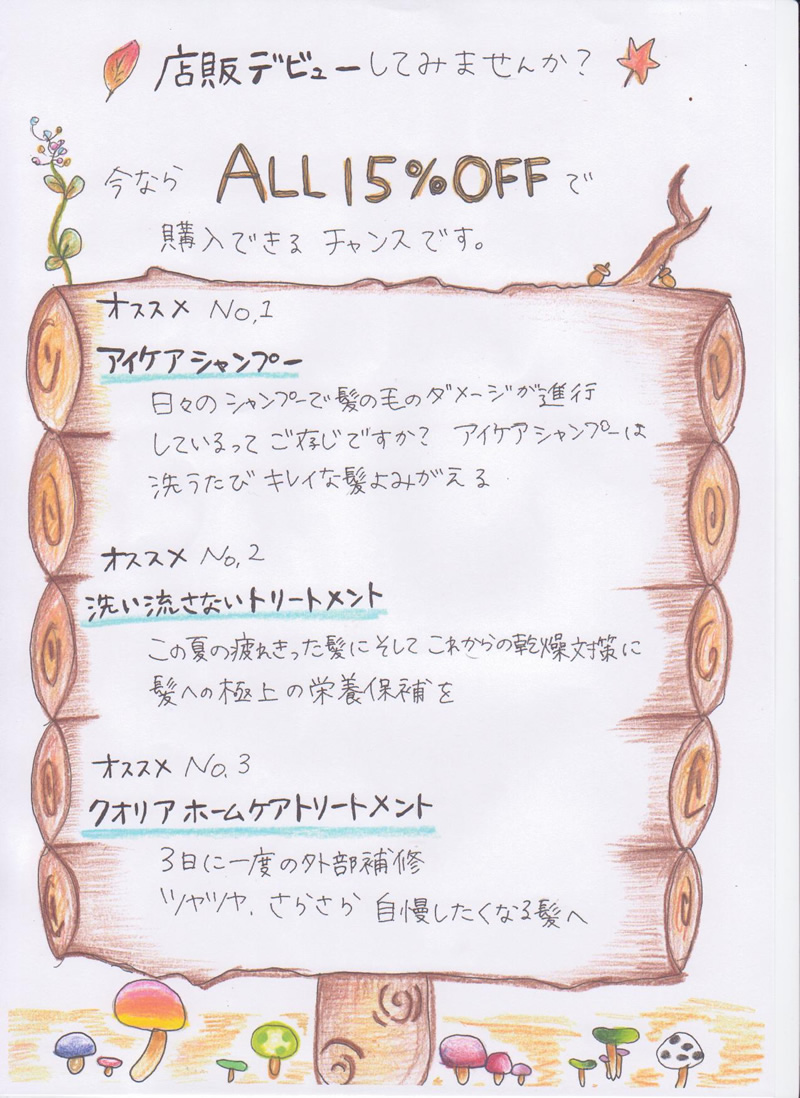 店販デビューしてみませんか?
今なら ALL 15%OFFで
購入できる チャンスです。
オススメ No,1
アイケアシャンプー
日々のシャンプーで髪の毛のダメージが進行
しているって ご存じですか? アイケアシャンプーは
洗うたび キレイな髪よみがえる
オススメ No,2
洗い流さないトリートメント
この夏の疲れきった髪にそして これからの乾燥対策に
髪への極上の栄養保補を
オススメ No.3
クオリア ホームケアトリートメント
3日に一度の外部補修
ツヤツヤ、さらさら 自慢したくなる髪へ